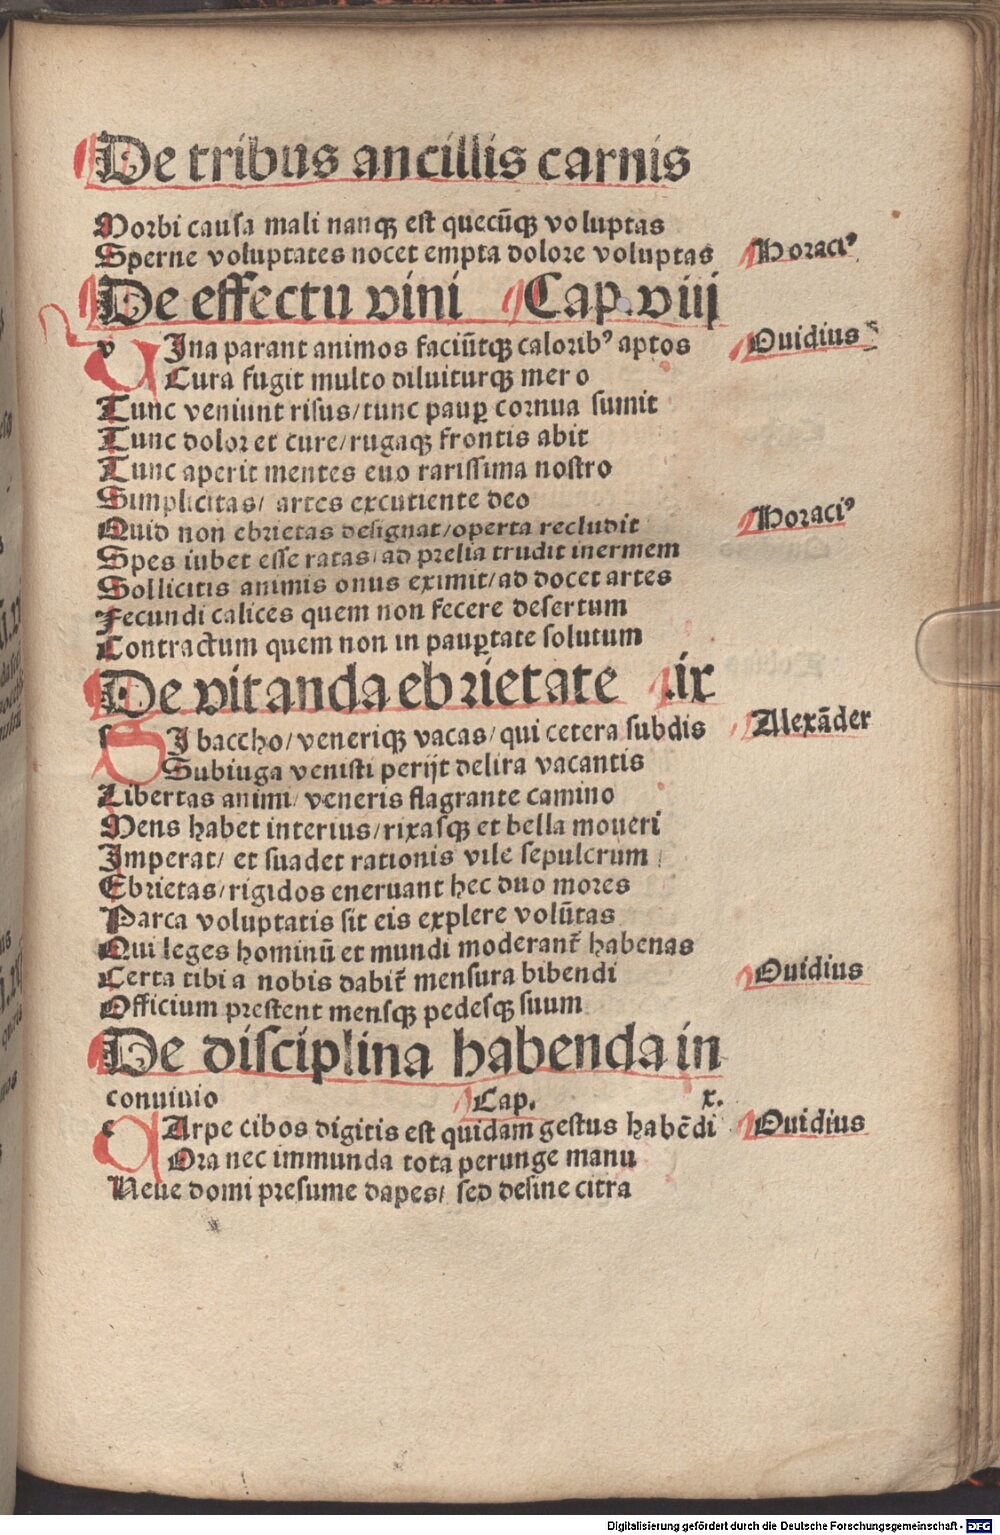 De tribus ancillis carnis
Morbi causa mali nanqꝫ est quecūqꝫ voluptas
Sperne voluptates nocet empta dolore voluptas Horaciꝰ
De effectu vini Cap. viij
v Ina parant animos faciūtqꝫ caloribꝰ aptos Ouidius
Cura fugit multo diluiturqꝫ mero
Tunc veniunt risus/ tunc paup̱ cornua sumit
Tunc dolor et cure/ rugaqꝫ frontis abit
Tunc aperit mentes euo rarissima nostro
Simplicitas/ artes excutiente deo
Quid non ebrietas designat/ operta recludit Horaciꝰ
Spes iubet esse ratas/ ad prelia trudit inermem
Sollicitis animis onus eximit/ ad docet artes
Fecundi calices quem non fecere desertum
Contractum quem non in paup̱tate solutum
De vitanda ebrietate .ix
s I baccho/ veneriqꝫ vacas/ qui cetera subdis Alexāder
Subiuga venisti perijt delira vacantis
Libertas animi/ veneris flagrante camino
Mens habet interius/ rixasqꝫ et bella moueri
Imperat/ et suadet rationis vile sepulcrum
Ebrietas/ rigidos eneruant hec duo mores
Parca voluptatis sit eis explere volūtas
Qui leges hominū et mundi moderant᷑ habenas
Certa tibi a nobis dabit᷑ mensura bibendi Ouidius
Officium prestent mensqꝫ pedesqꝫ suum
De disciplina habenda in
conuiuio Cap. x.
c Arpe cibos digitis est quidam gestus habēdi Ouidius
Ora nec immunda tota perunge manu
Neue domi presume dapes/ sed desine citra
Digitalisierung gefördert durch die Deutsche Forschungsgemeinschaft - DFG